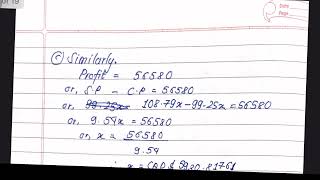 of 19
Date
Page
© Similarly,
Profit = 56580
or, S.P - C.P = 56580
or, 99.25x 108.79x - 99.25x = 56580
or, 9.54x = 56580
or, x = 56580
9.54
∴ x = CAD $ 5930.81761